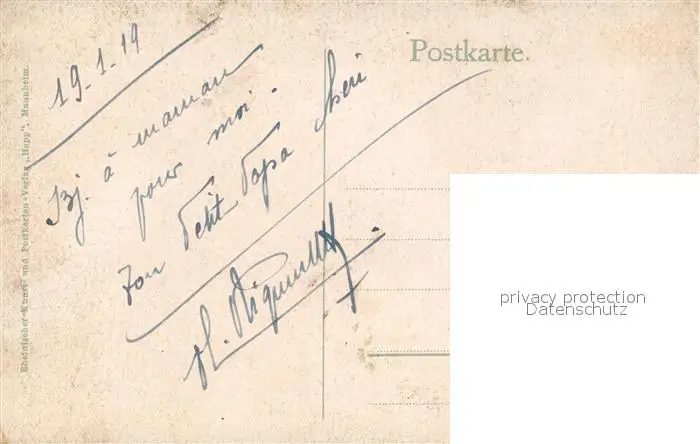 Postkarte.
19-1-19
Bj. à maman
pour moi.
Ton Petit Papa chéri
Rheinischer Kunst- und Postkarten-Verlag „Hopp“, Mannheim.
privacy protection
Datenschutz